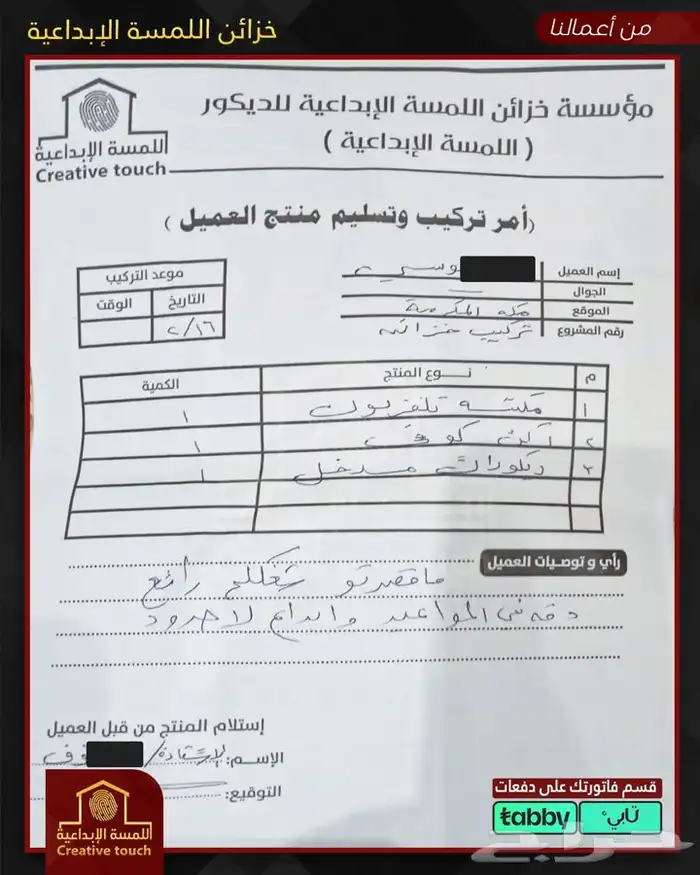 خزائن اللمسة الإبداعية
من أعمالنا
مؤسسة خزائن اللمسة الإبداعية للديكور
( اللمسة الإبداعية )
اللمسة الإبداعية
Creative touch
(أمر تركيب وتسليم منتج العميل )
إسم العميل
الجوال
الموقع مكه المكرمة
رقم المشروع تركيب خزائن
موعد التركيب
التاريخ الوقت
٢/١٦
م نوع المنتج الكمية
١ مكتبه تلفزيون ١
٢ ١
٣ ديكورات مدخل ١
رأي و توصيات العميل
ماقصرتو شغلكم رائع
دقه في المواعيد وابداع لاحدود
إستلام المنتج من قبل العميل
الإسم: الاستاذة/
التوقيع:
اللمسة الإبداعية
Creative touch
قسم فاتورتك على دفعات
tabby تابي
حراج